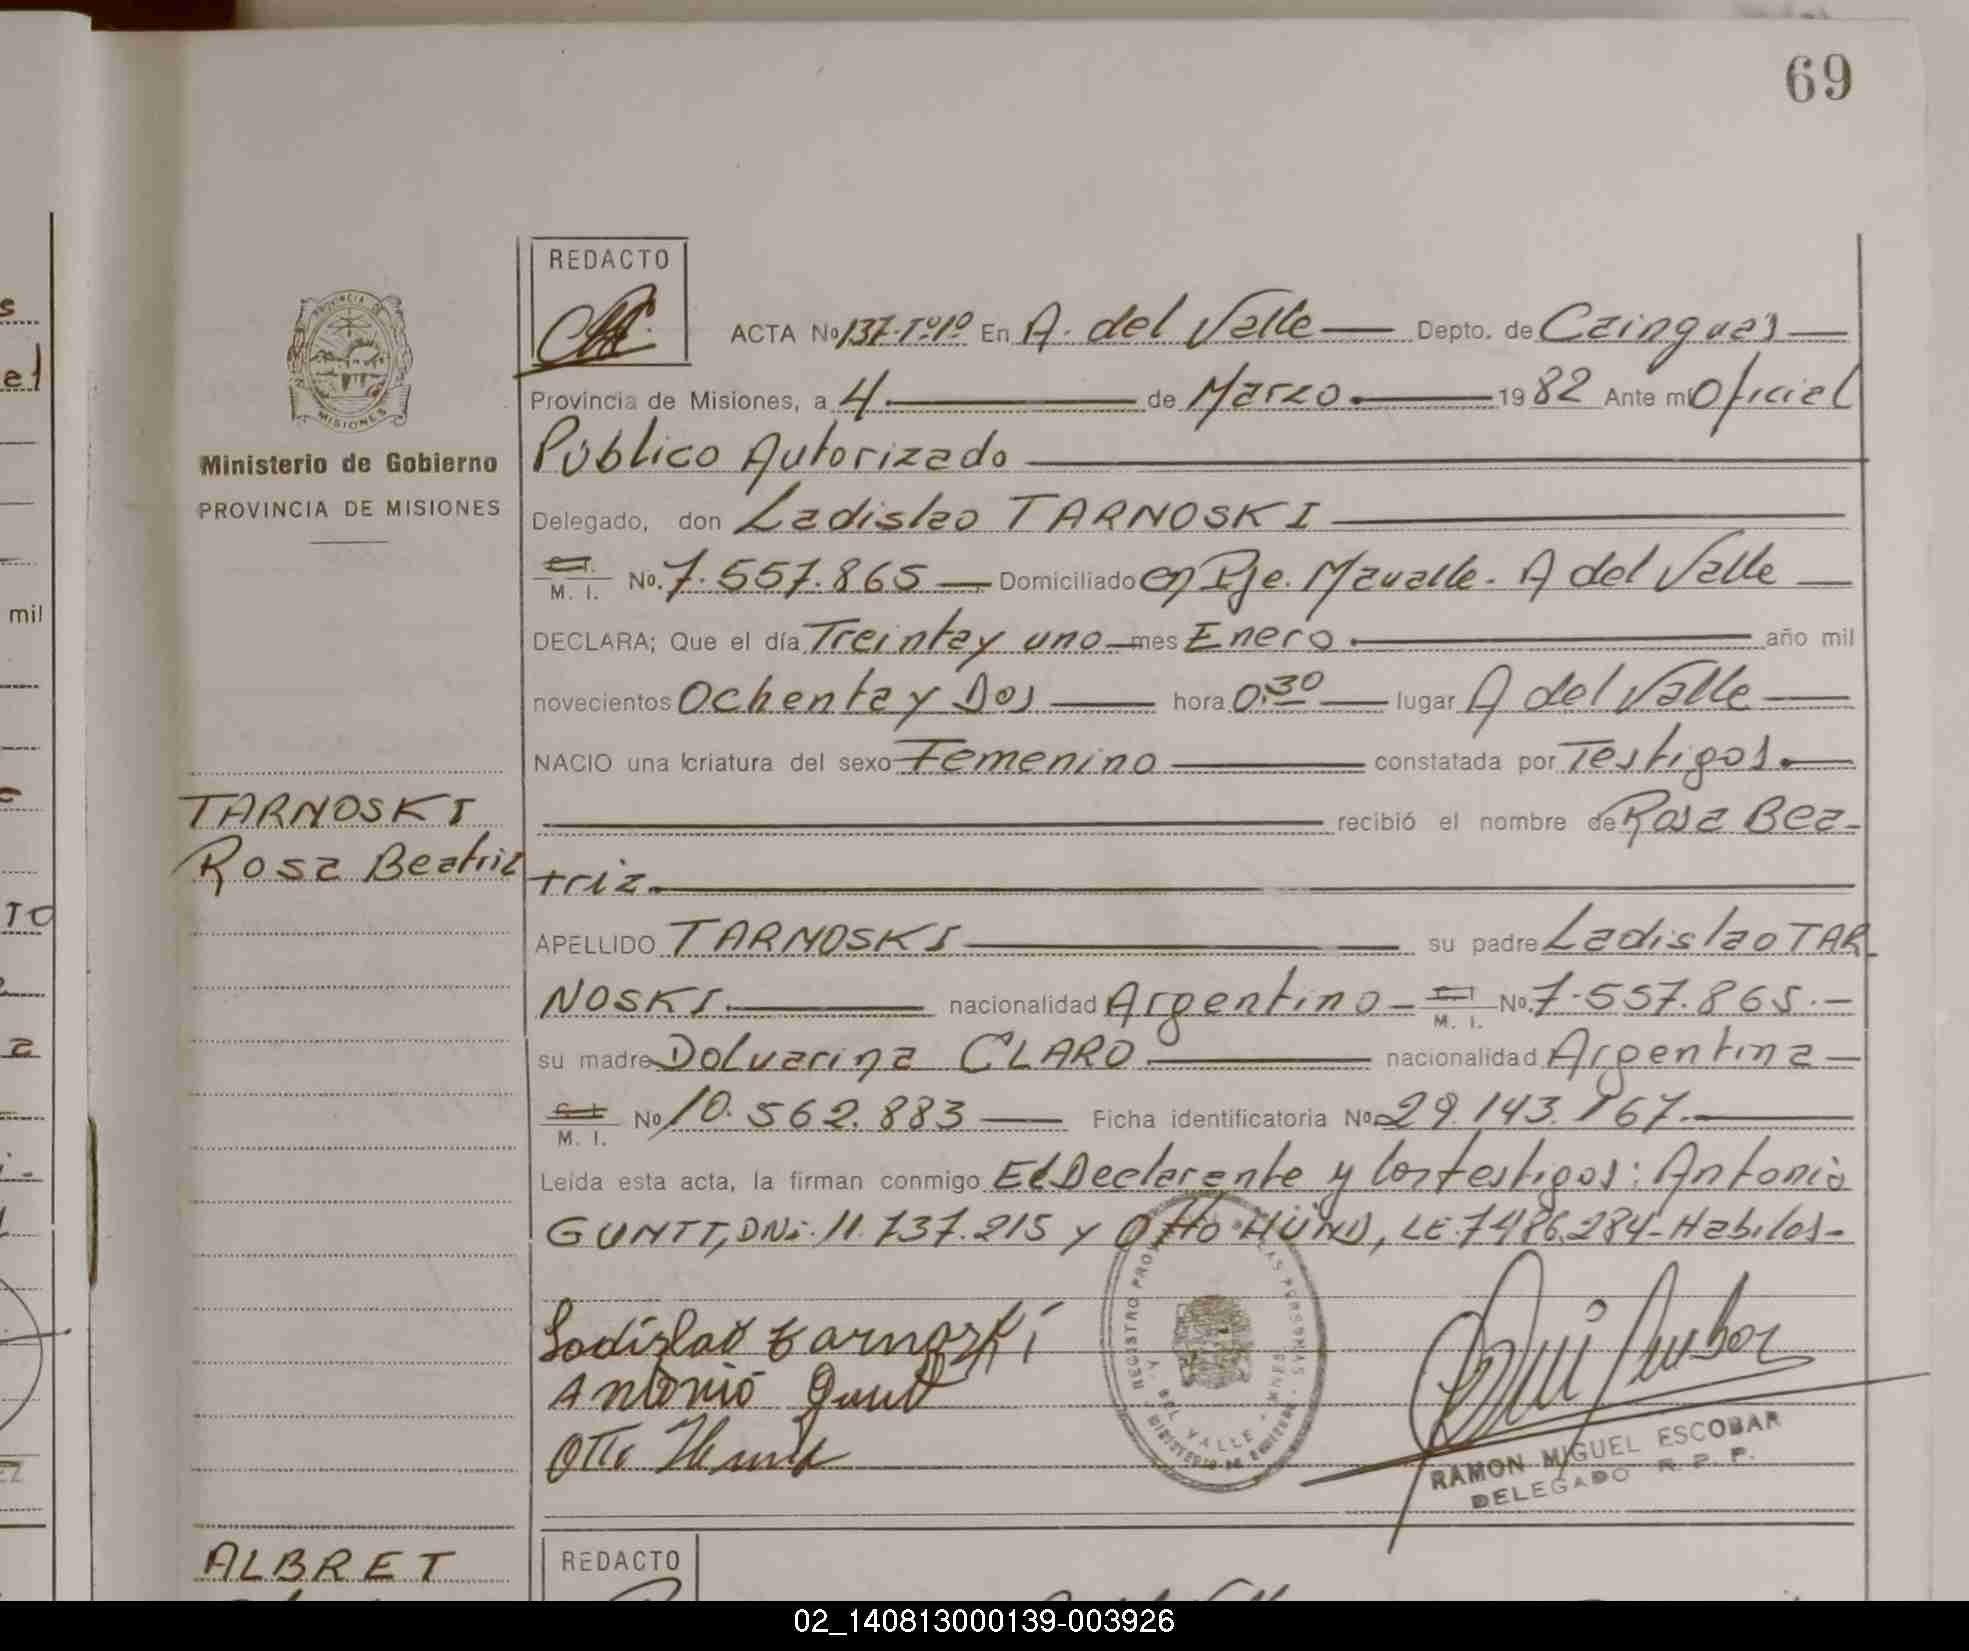 69
REDACTO
ACTA No 137-Tº1º En A. del Valle Depto. de Cainguas
Provincia de Misiones, a 4 de Marzo 1982 Ante mí Oficial
Publico Autorizado
Delegado, don Ladislao TARNOSKI
C. I.
M. I. No. 7.557.865 Domiciliado en Pje. Mavalle. A del Valle
DECLARA; Que el día Treinta y uno mes Enero año mil
novecientos Ochenta y Dos hora 0.30 lugar A del Valle
NACIO una criatura del sexo Femenino constatada por Testigos.
recibió el nombre de Rosa Bea-
triz.
APELLIDO TARNOSKI su padre Ladislao TAR
NOSKI. nacionalidad Argentino C. I.
M. I. No. 7.557.865.
su madre Dolvarina CLARO nacionalidad Argentina
C. I.
M. I. No 10.562.883 Ficha identificatoria No 29.143.167.
Leída esta acta, la firman conmigo El Declarante y los testigos: Antonio
GUNTT, DNi. 11.737.215 y Otto HÜND, LE 7486.284-Habilos-
Ladislao tarnoski
Antonio Gunt
Otto
REGISTRO PROV DE LAS PERSONAS
A. DEL VALLE - MNES.
MINISTERIO DE GOBIERNO
RAMON MIGUEL ESCOBAR
DELEGADO R. P. P.
PROVINCIA DE
MISIONES
Ministerio de Gobierno
PROVINCIA DE MISIONES
TARNOSKI
Rosa Beatriz
ALBRET
REDACTO
s
el
mil
TO
a
EZ
02_140813000139-003926